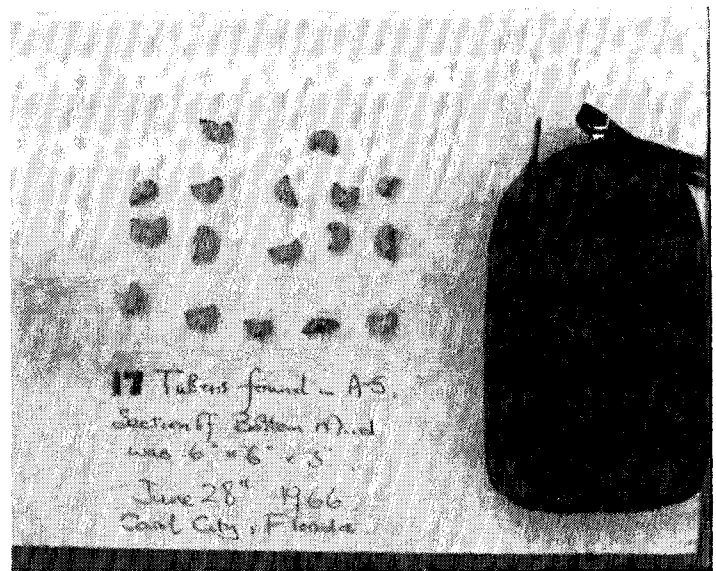 17 Tubers found in A-5.
Section of Bottom Mud
was 6" × 6" × 3"
June 28" 1966
Coral City, Florida